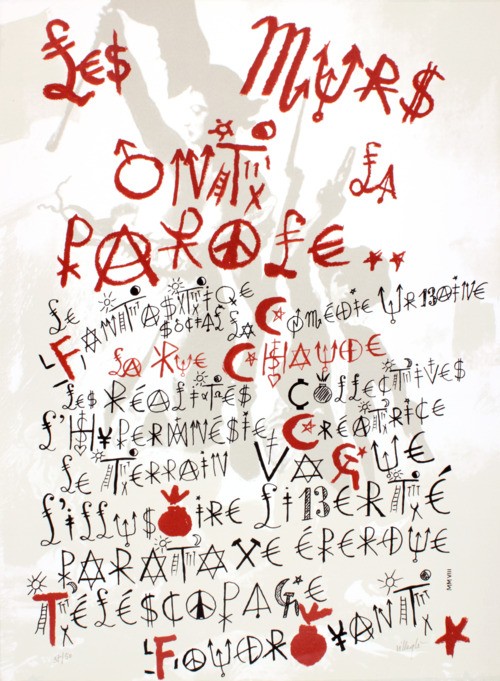 LES MURS
ONT LA
PAROLE..
LE FANTASTIQUE
SOCIAL LA COMÉDIE URBAINE
LA RUE CHAUDE
LES RÉALITÉS COLLECTIVES
L'HYPERMNÉSIE CRÉATRICE
LE TERRAIN VAGUE
L'ILLUSOIRE LIBERTÉ
PARATAXE ÉPERDUE
TÉLÉSCOPAGE
FOUDROYANT
MMVIII